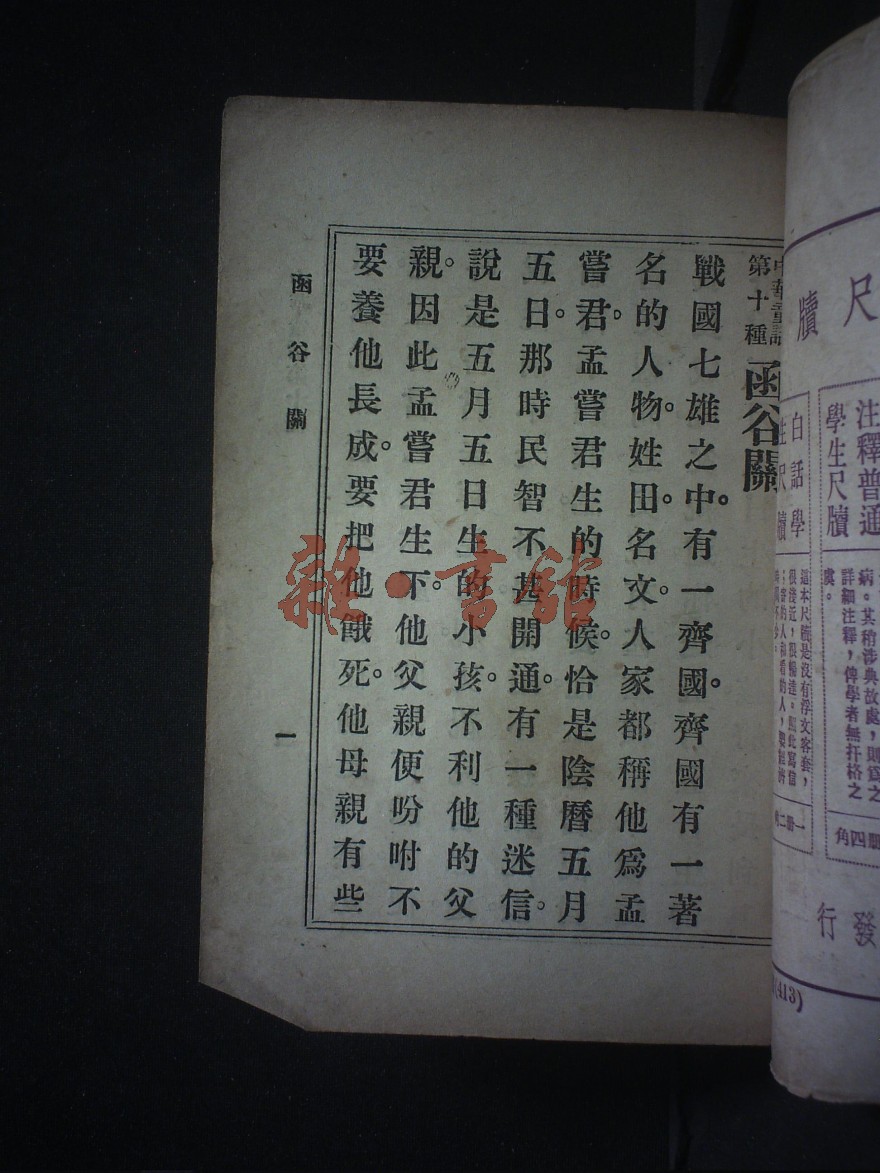 中華童話
第十種
函谷關
戰國七雄之中。有一齊國。齊國有一著
名的人物。姓田。名文。人家都稱他爲孟
嘗君。孟嘗君生的時候。恰是陰曆五月
五日。那時民智不甚開通。有一種迷信。
說是五月五日生的小孩。不利他的父
親。因此孟嘗君生下。他父親便吩咐不
要養他長成。要把他餓死。他母親有些
函谷關
一
尺牘
注釋普通
學生尺牘
病。其稍涉典故處，則爲之
詳細注釋，俾學者無扞格之
虞。
角四冊
白話學
這本尺牘是沒有浮文客套，
一冊二
發行
(413)
雜·書館